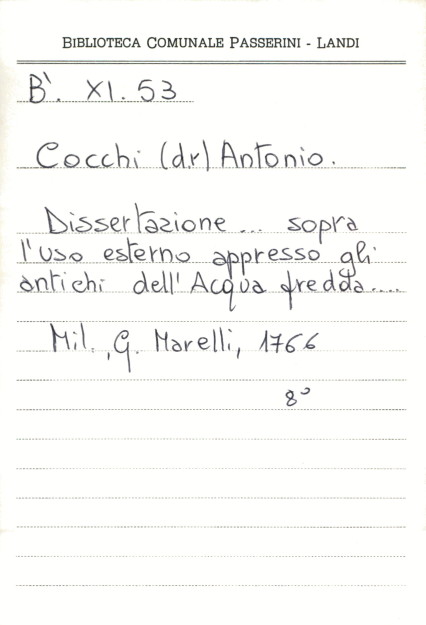 BIBLIOTECA COMUNALE PASSERINI - LANDI
B'. XI. 53
Cocchi (dr) Antonio.
Dissertazione ... sopra
l'uso esterno appresso gli
antichi dell'Acqua fredda....
Mil., G. Marelli, 1766
8°